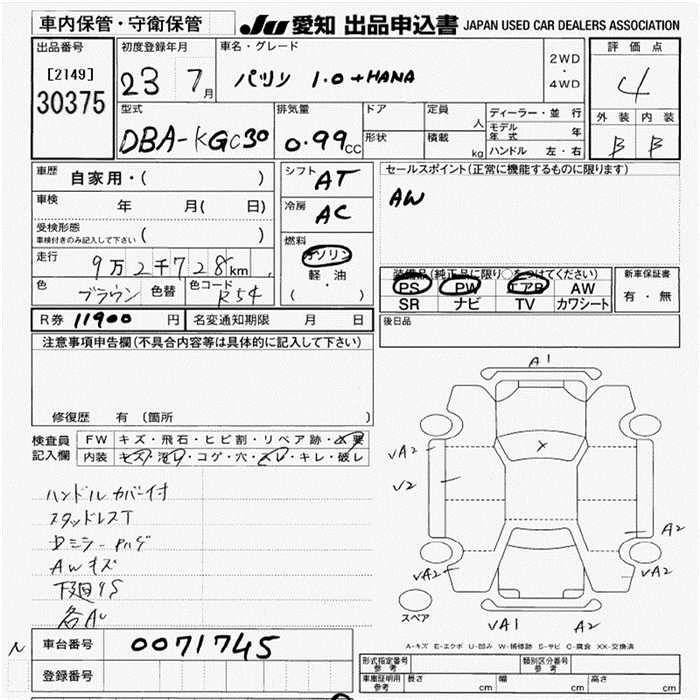 車内保管・守衛保管
JU 愛知 出品申込書 JAPAN USED CAR DEALERS ASSOCIATION
出品番号
[2149]
30375
初度登録年月
23 7月
車名・グレード
パッソ 1.0 +HANA
2WD
・
4WD
評価点
4
外装 内装
B B
型式
DBA-KGC30
排気量
0.99CC
ドア
形状
定員 人
積載 kg
ディーラー・並行
モデル年式 年
ハンドル 左・右
車歴 自家用・( )
車検 年 月( 日)
受検形態
車検付きのみ記入して下さい ( )
走行 9万2千728km
色 ブラウン 色替 色コード R54
シフト AT
冷房 AC
燃料
ガソリン
軽油
( ・ )
セールスポイント(正常に機能するものに限ります)
AW
装備品(純正品に限り○をつけてください)
PS PW エアB AW
SR ナビ TV カワシート
新車保証書
有・無
R券 11900 円 名変通知期限 月 日
後日品
注意事項申告欄(不具合内容等は具体的に記入して下さい)
修復歴 有 (箇所 )
検査員
記入欄
FW キズ・飛石・ヒビ割・リペア跡・ 要
内装 キズ・汚レ・コゲ・穴・スレ・キレ・破レ
ハンドルカバー付
スタッドレスT
AWキズ
下廻りS
A1
VA2
V2
A2
VA2
VA2
VA1 A2
スペア
A-キズ E-エクボ U-凹み W-補修跡 S-サビ C-腐食 XX-交換済
N 車台番号 0071745
登録番号
形式指定番号 参考
類別区分番号 参考
車庫証明用 参考 長さ cm 幅 cm 高さ cm